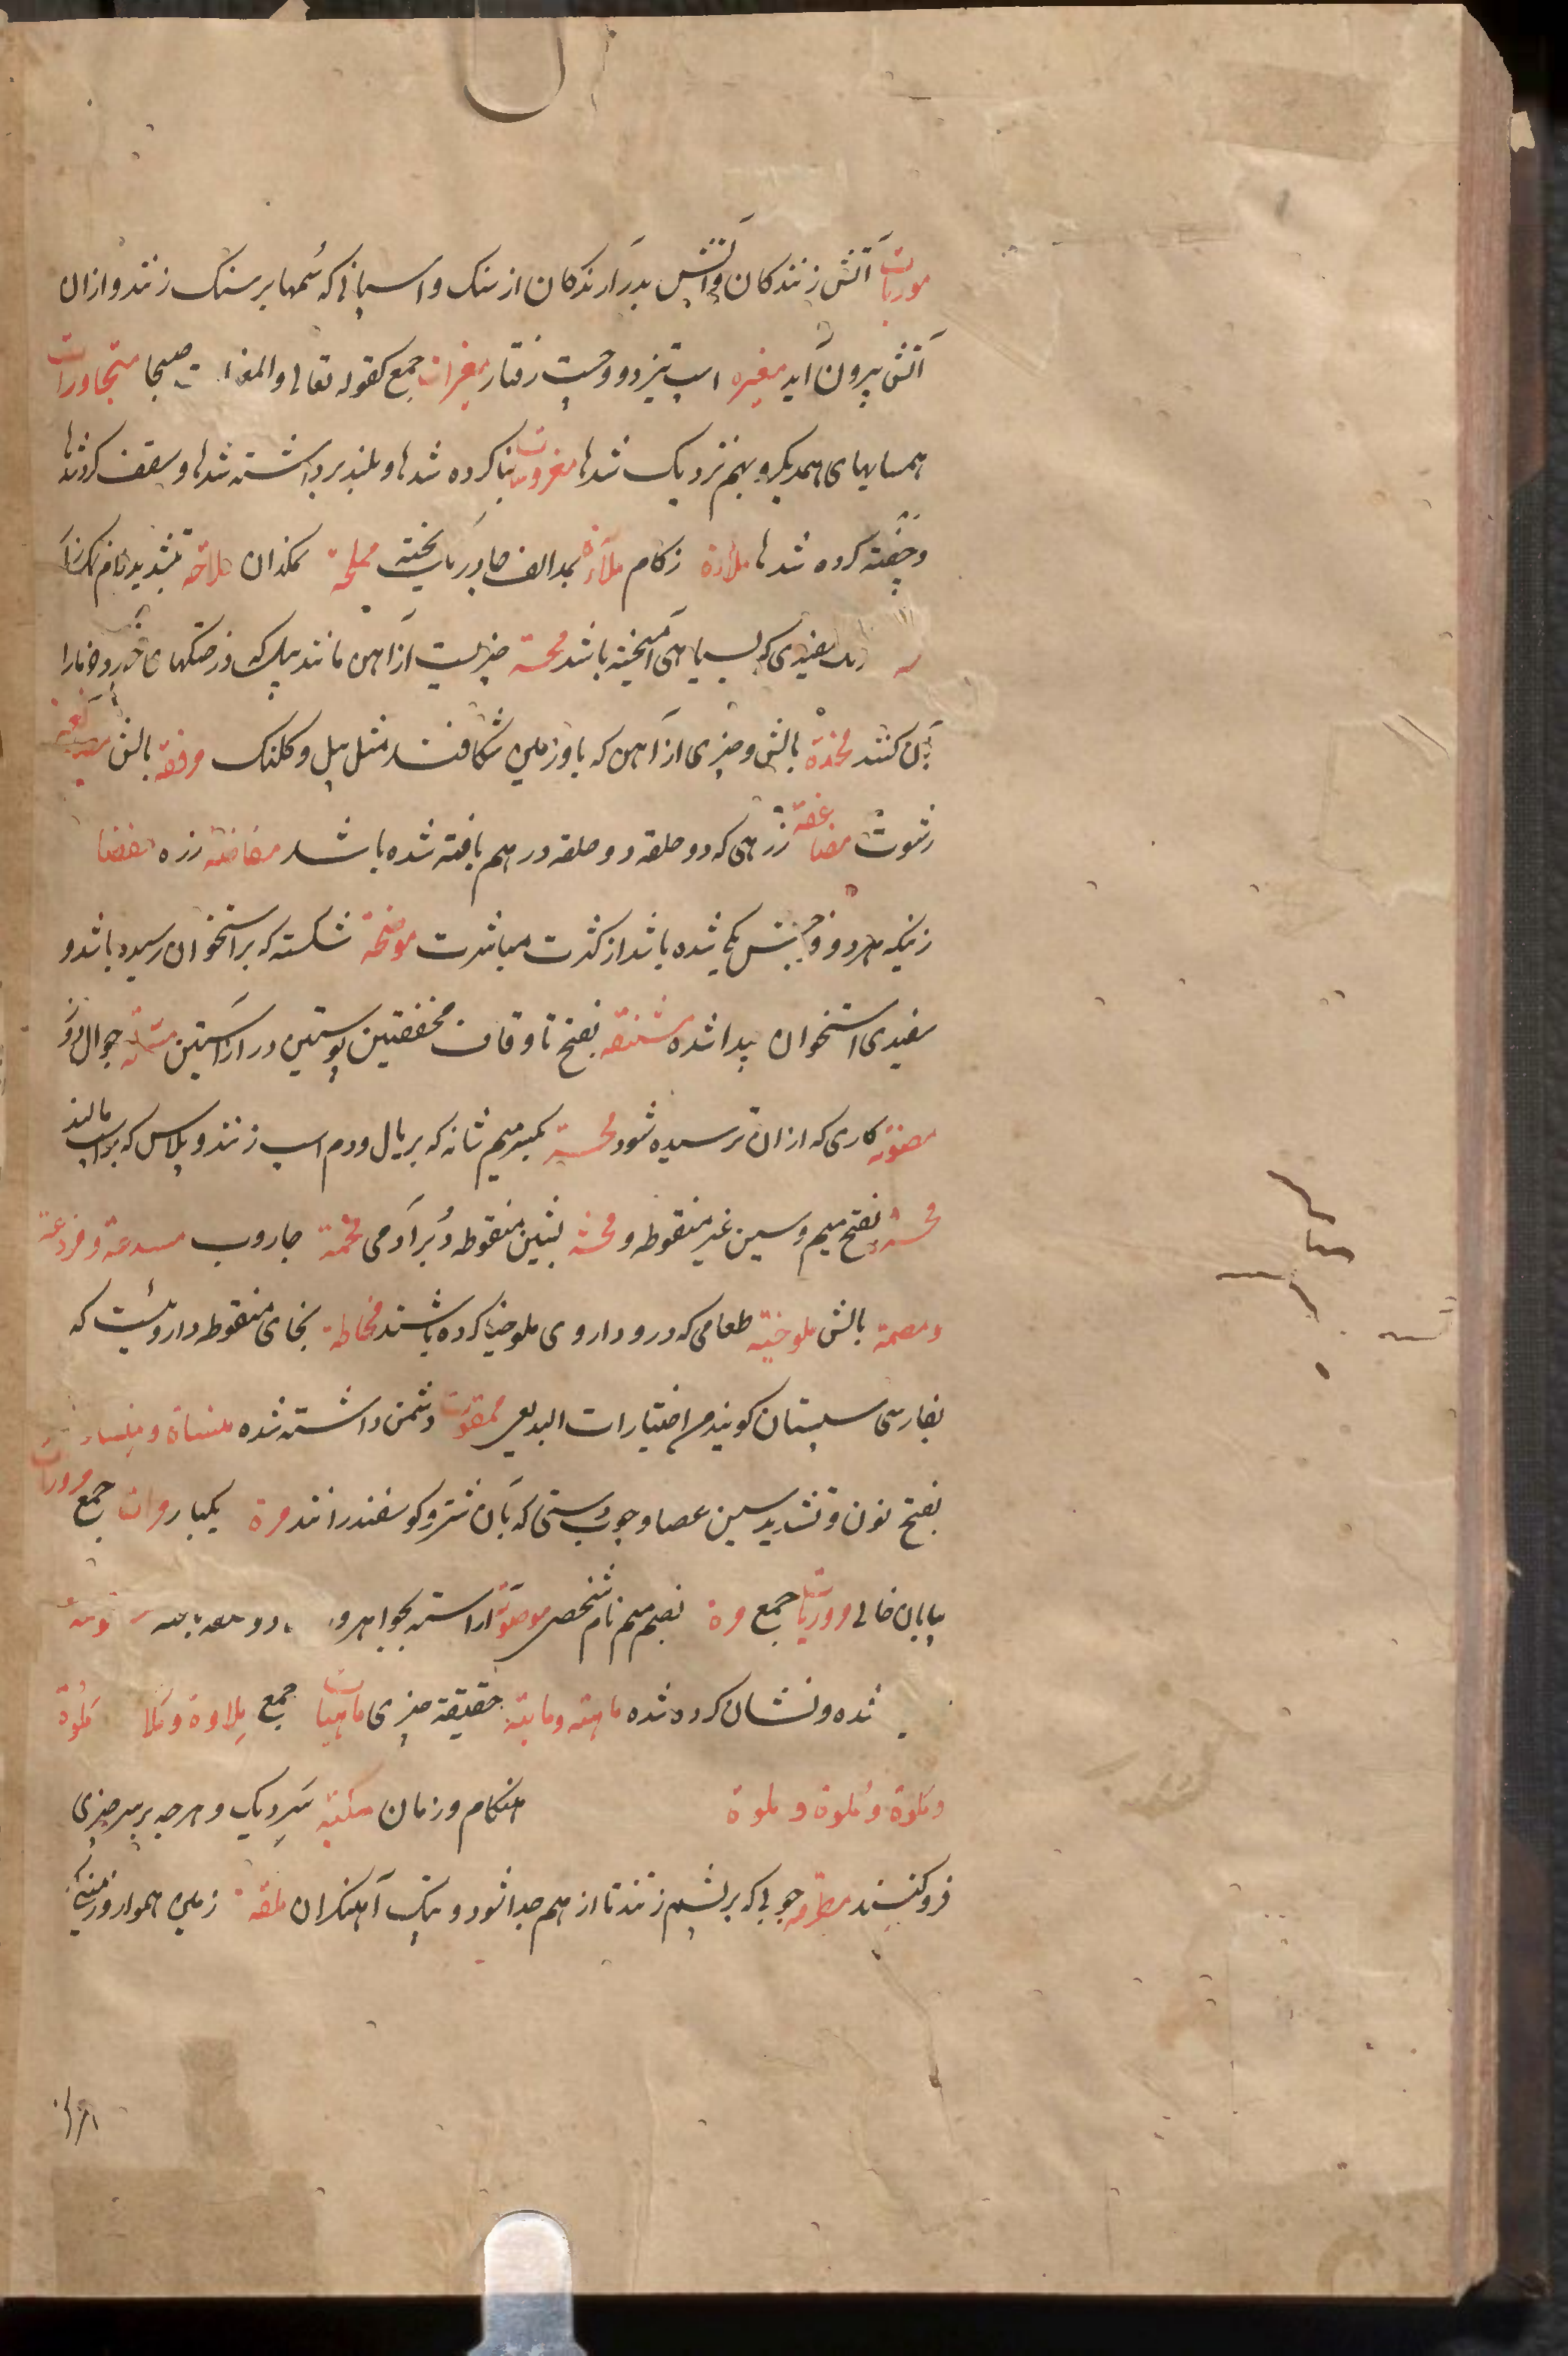 موریات آتش زنندکان و آتش بدر آرندکان از سنک و اسپانی که سُمها بر سنک زنند و از ان
آتش بیرون آید مغیره اسپ تیز دو و چست رفتار مغیرات جمع کقوله تعالی و المغیرات صبحا متجاورات
همسایهای همدیکر و بهم نزدیک شدها معروشات بنا کرده شدها و بلند برداشته شدها و سقف کرده شدها
و چفته کرده شدها ملاءة زکام ملآءة بمد الف چادر یک لخت مملحة نمکدان ملاحة بتشدید لام نمکزار
سفیدی که بسیاهی آمیخته باشد محسة چیزیست از آهن مانند بیل که درختهای خورد و خار را
بآن کنند مخدة بالش و چیزی از آهن که باو زمین شکافند مثل بیل و کلنک مرفقه بالش مصانعه
رشوت مضاعفة زرهی که دو حلقه دو حلقه در هم بافته شده باشد مفاضة زره مفضاة
زنیکه هر دو فرجش یکی شده باشد از کثرت مباشرت موضحة شکسته که بر استخوان رسیده باشد و
سفیدی استخوان پیدا شده مستقه بفتح تا و قاف مخففتین پوستین دراز آستین مسلة جوال دوز
مضوفه کاری که از ان ترسیده شود محسة بکسر میم شانه که بر یال و دم اسپ زنند و پلاس که بر اسپ مالند
محسة بفتح میم و سین غیر منقوطه و محشة بشین منقوطه دُبر آدمی مخمة جاروب مسدعة و مزدعة
و مصمة بالش ملوخیة طعامی که در و داروی ملوخیا کرده باشند مخاطة بخای منقوطه داروئیست که
بفارسی سپستان کویند من اختیارات البدیعی ممقوت دشمن داشته شده منساة و منساء
بفتح نون و تشدید سین عصا و چوب دستی که بآن شتر و کوسفند رانند مرة یکبار مرات جمع مرورات
بیابان خالی مروریات جمع مرة بضم میم نام شخصی موضونة آراسته بجواهر و
شده و نشان کرده شده ماهیة و مایة حقیقة چیزی ماهیات جمع مِلاوة و مَلا مَلوة
و مَلوة و مُلوة و ملوة هنکام و زمان مکبة سَردیک و هرچه بر سر چیزی
فرو کنند مطرقه چوبی که بر پشم زنند تا از هم جدا شود و پتک آهنکران ملقة زمین هموار و زمینیکه